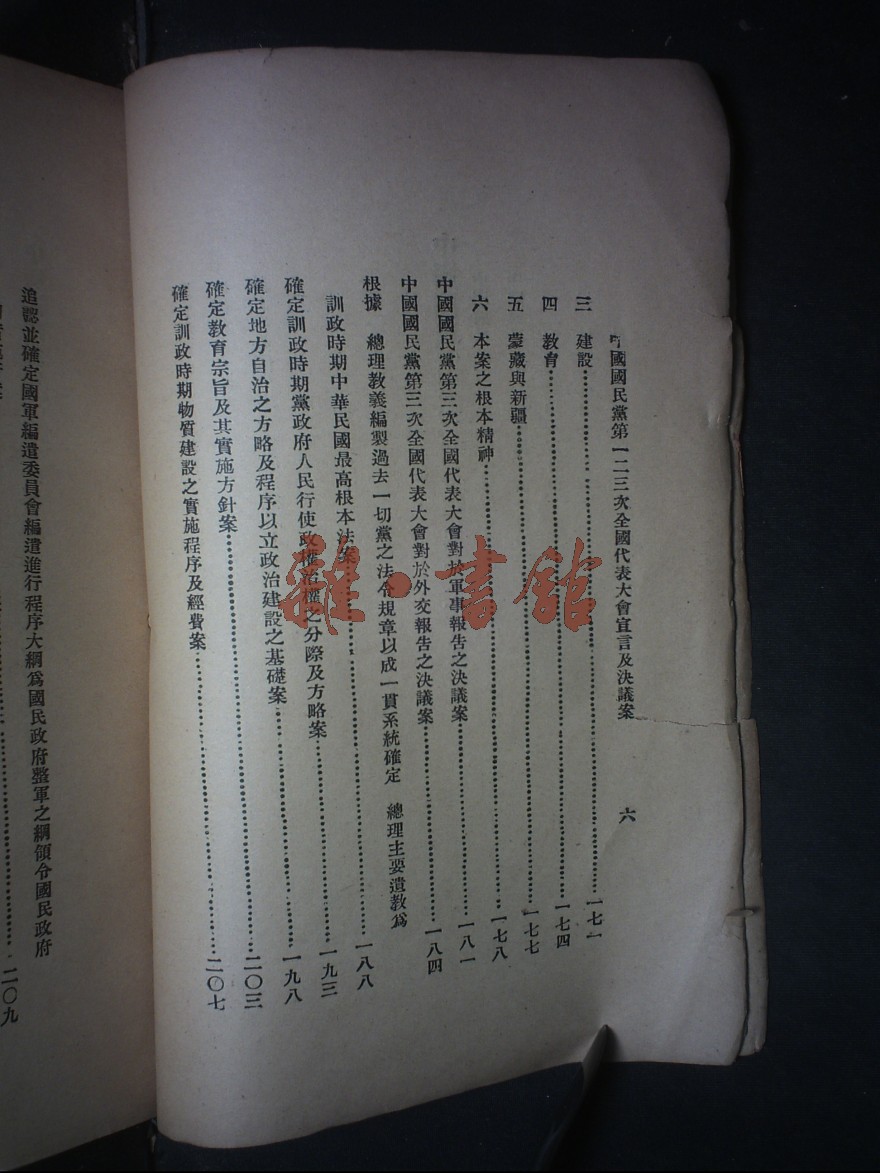 中國國民黨第一二三次全國代表大會宣言及決議案 六
三 建設……一七一
四 教育……一七四
五 蒙藏與新疆……一七七
六 本案之根本精神……一七八
中國國民黨第三次全國代表大會對於軍事報告之決議案……一八一
中國國民黨第三次全國代表大會對於外交報告之決議案……一八四
根據 總理教義編製過去一切黨之法令規章以成一貫系統確定 總理主要遺教爲
訓政時期中華民國最高根本法案……一八八
確定訓政時期黨政府人民行使政權治權之分際及方略案……一九三
確定地方自治之方略及程序以立政治建設之基礎案……一九八
確定教育宗旨及其實施方針案……二〇三
確定訓政時期物質建設之實施程序及經費案……二〇七
追認並確定國軍編遣委員會編遣進行程序大綱爲國民政府整軍之綱領令國民政府
……二〇九
雜·書館